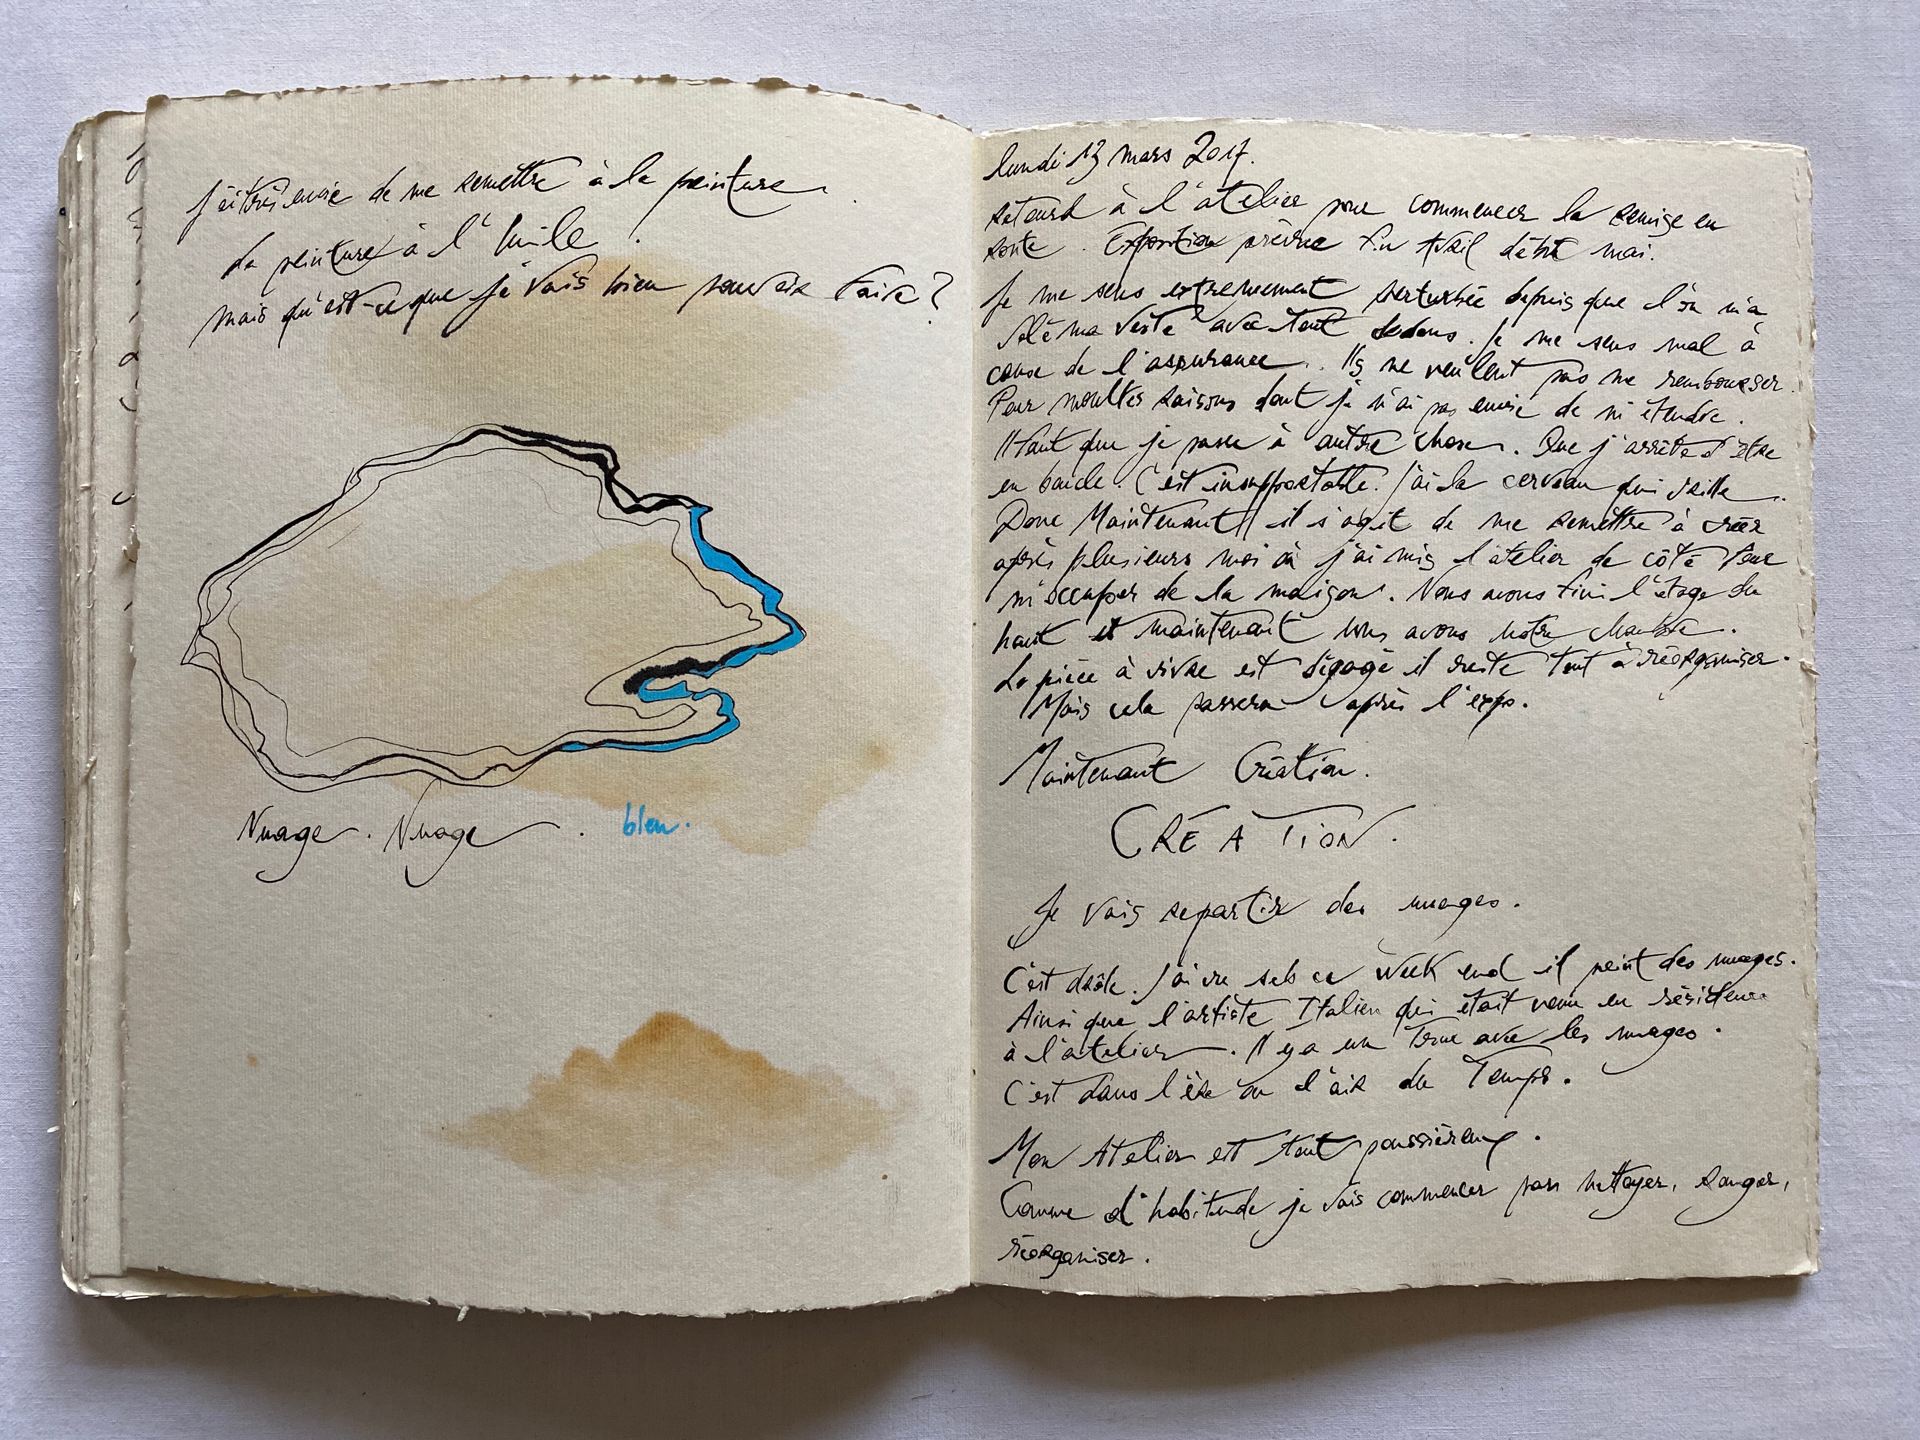 j'ai très envie de me remettre à la peinture
la peinture à l'huile.
mais qu'est-ce que je vais bien pouvoir faire ?
Nuage. Nuage. bleu.
lundi 13 mars 2017.
retour à l'atelier pour commencer la remise en
route. Exposition prévue fin Avril début mai.
Je me sens extrêmement perturbée depuis que l'on m'a
volé ma veste avec tout dedans. je me sens mal à
cause de l'assurance. Ils ne veulent pas me rembourser.
Pour moultes raisons dont je n'ai pas envie de m'étendre.
Il faut que je passe à autre chose. Que j'arrête d'être
en boucle. C'est insupportable. j'ai le cerveau qui vrille.
Donc Maintenant il s'agit de me remettre à créer
après plusieurs mois où j'ai mis l'atelier de côté pour
m'occuper de la maison. Nous avons fini l'étage du
haut et maintenant nous avons notre chambre.
La pièce à vivre est dégagé il reste tout à réorganiser.
Mais cela passera après l'expo.
Maintenant Création.
CRÉATION.
Je vais repartir des nuages.
C'est drôle. j'ai vu seb ce week end il peint des nuages.
Ainsi que l'artiste Italien qui était venu en résidence
à l'atelier. Il y a un truc avec les nuages.
C'est dans l'ère ou l'air du Temps.
Mon Atelier est tout poussiéreux.
Comme d'habitude je vais commencer par nettoyer, ranger,
réorganiser.